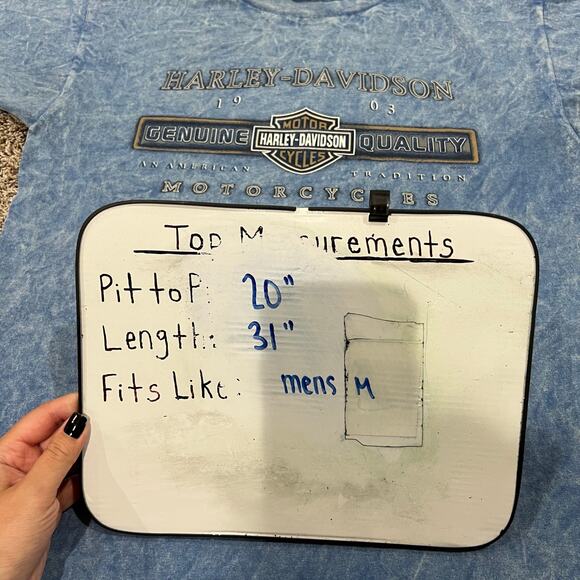 HARLEY-DAVIDSON
19 03
MOTOR
GENUINE HARLEY-DAVIDSON QUALITY
CYCLES
AN AMERICAN TRADITION
MOTORCYCLES
Top M urements
Pit to P:
20"
Length:
31"
Fits Like: mens M